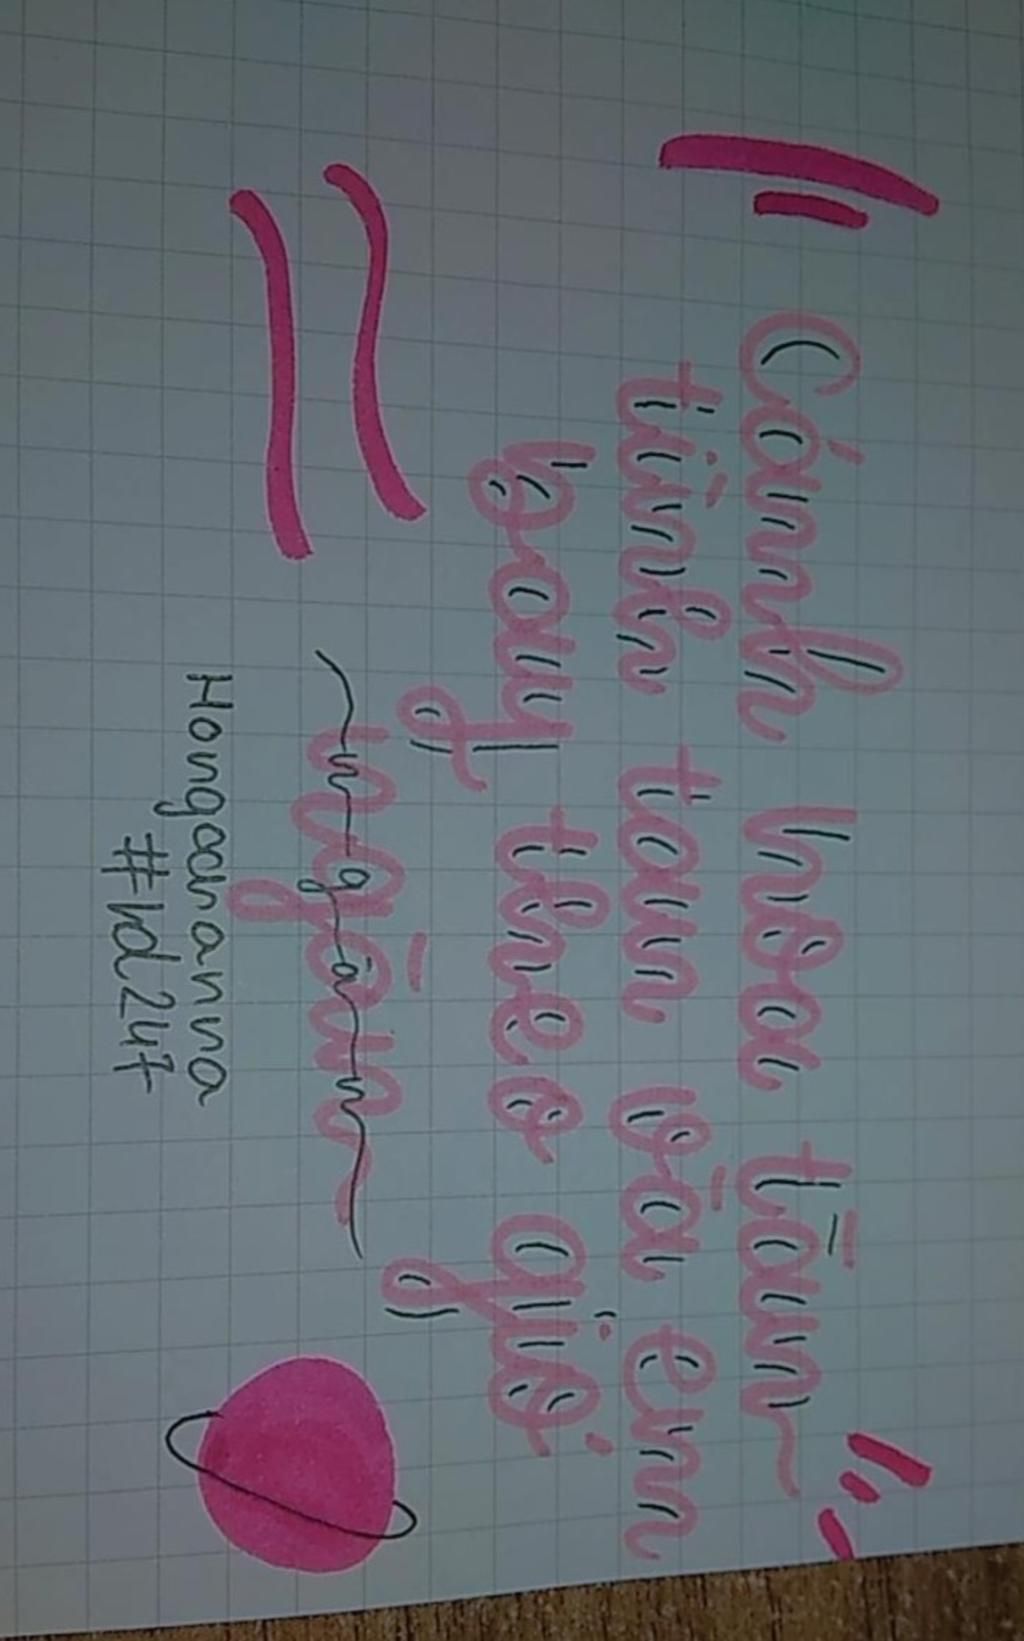 Cánh hoa tàn
tình tan và em
bay theo gió
ngàn
Hongocnanna
#hd247